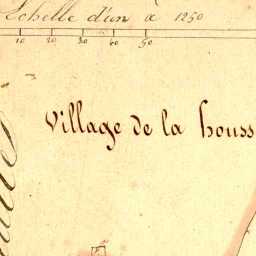 Echelle d'un à 1250
10 20 30 40 50
Village de la houss